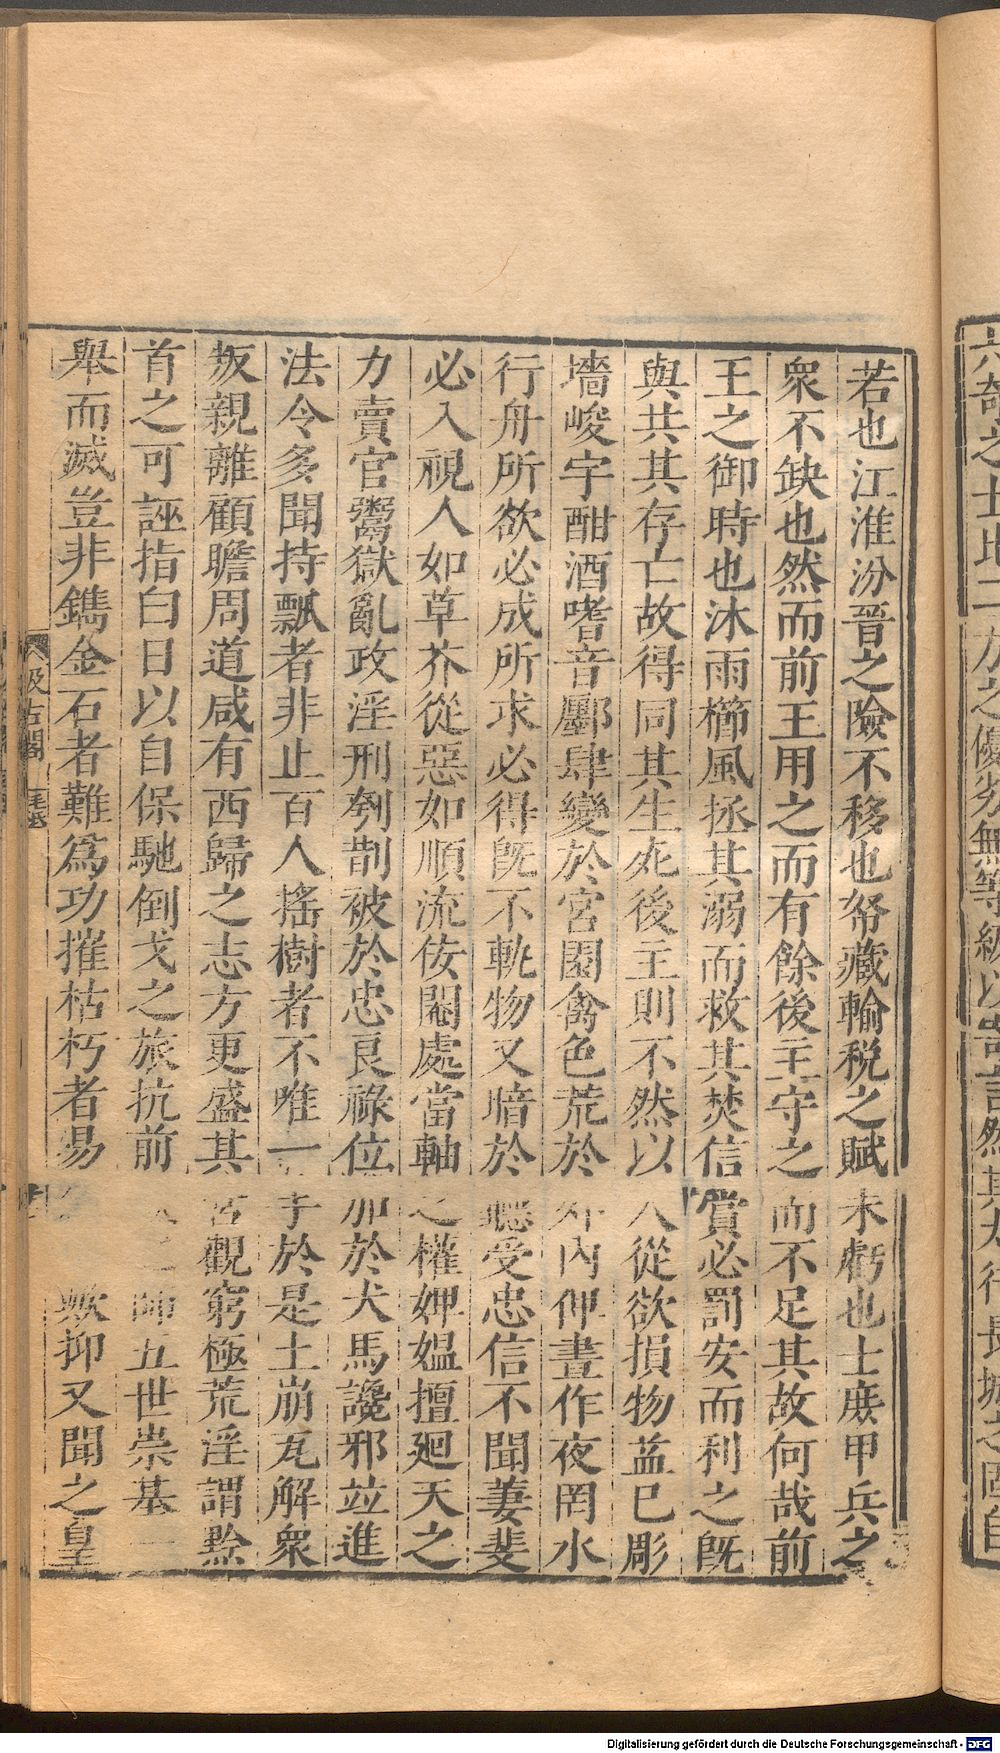 若也江淮汾晉之險不移也帑藏輸稅之賦未虧也士庶甲兵之
衆不缺也然而前王用之而有餘後主守之而不足其故何哉前
王之御時也沐雨櫛風拯其溺而救其焚信賞必罰安而利之旣
與共其存亡故得同其生死後主則不然以人從欲損物益己彫
墻峻宇酣酒嗜音鄽肆變於宮園禽色荒於外內俾晝作夜罔水
行舟所欲必成所求必得旣不軌物又暗於聽受忠信不聞萋斐
必入視人如草芥從惡如順流佞閹處當軸之權婢媼擅廻天之
力賣官鬻獄亂政淫刑刳剒被於忠良祿位加於犬馬讒邪竝進
法令多聞持瓢者非止百人搖樹者不唯一手於是土崩瓦解衆
叛親離顧瞻周道咸有西歸之志方更盛其宮觀窮極荒淫謂黔
首之可誣指白日以自保馳倒戈之旅抗前師五世崇基一
舉而滅豈非鐫金石者難爲功摧枯朽者易歟抑又聞之皇
汲古閣
六奇之士比二方之優劣無等級以寄言然其太行長城之固自
Digitalisierung gefördert durch die Deutsche Forschungsgemeinschaft - DFG